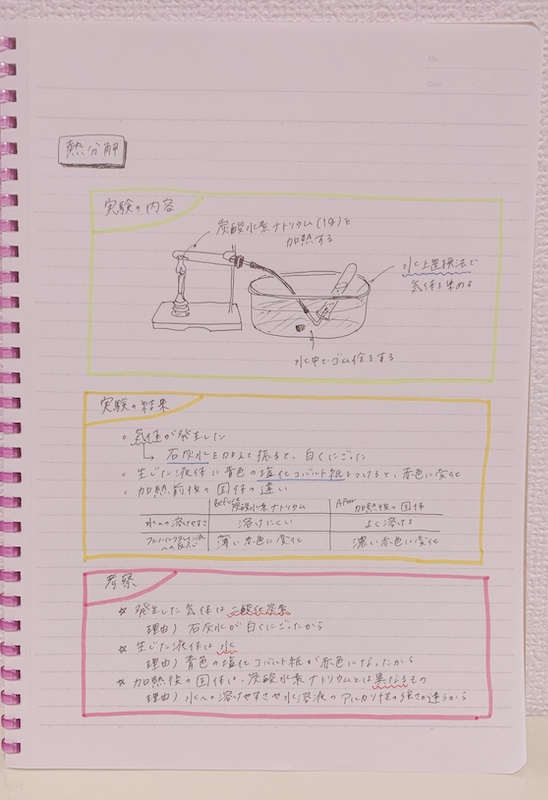 No.
Date
熱分解
実験の内容
炭酸水素ナトリウム(1g)を
加熱する
水上置換法で
気体を集める
水中でゴム栓をする
実験の結果
○ 気体が発生した
↳ 石灰水を加えて振ると、白くにごった
○ 生じた液体に青色の塩化コバルト紙をつけると、赤色に変化
○ 加熱前後の固体の違い
Before 炭酸水素ナトリウム
After 加熱後の固体
水への溶けやすさ 溶けにくい よく溶ける
フェノールフタレイン液
への反応 薄い赤色に変化 濃い赤色に変化
考察
☆ 発生した気体は二酸化炭素
理由) 石灰水が白くにごったから
☆ 生じた液体は水
理由) 青色の塩化コバルト紙が赤色になったから
☆ 加熱後の固体は、炭酸水素ナトリウムとは異なるもの
理由) 水への溶けやすさや水溶液のアルカリ性の強さが違うから